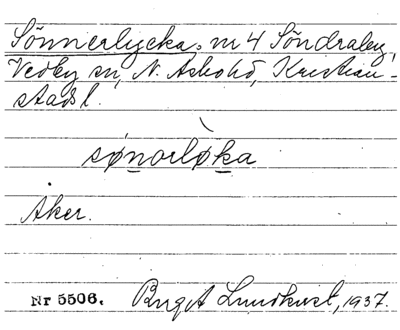 Sönnerlycka, nr 4 Söndraby,
Vedby sn, N. Åsbo hd, Kristian-
stads l.
sønorløka
Åker.
Nr 5506. Birgit Lundkvist, 1937.